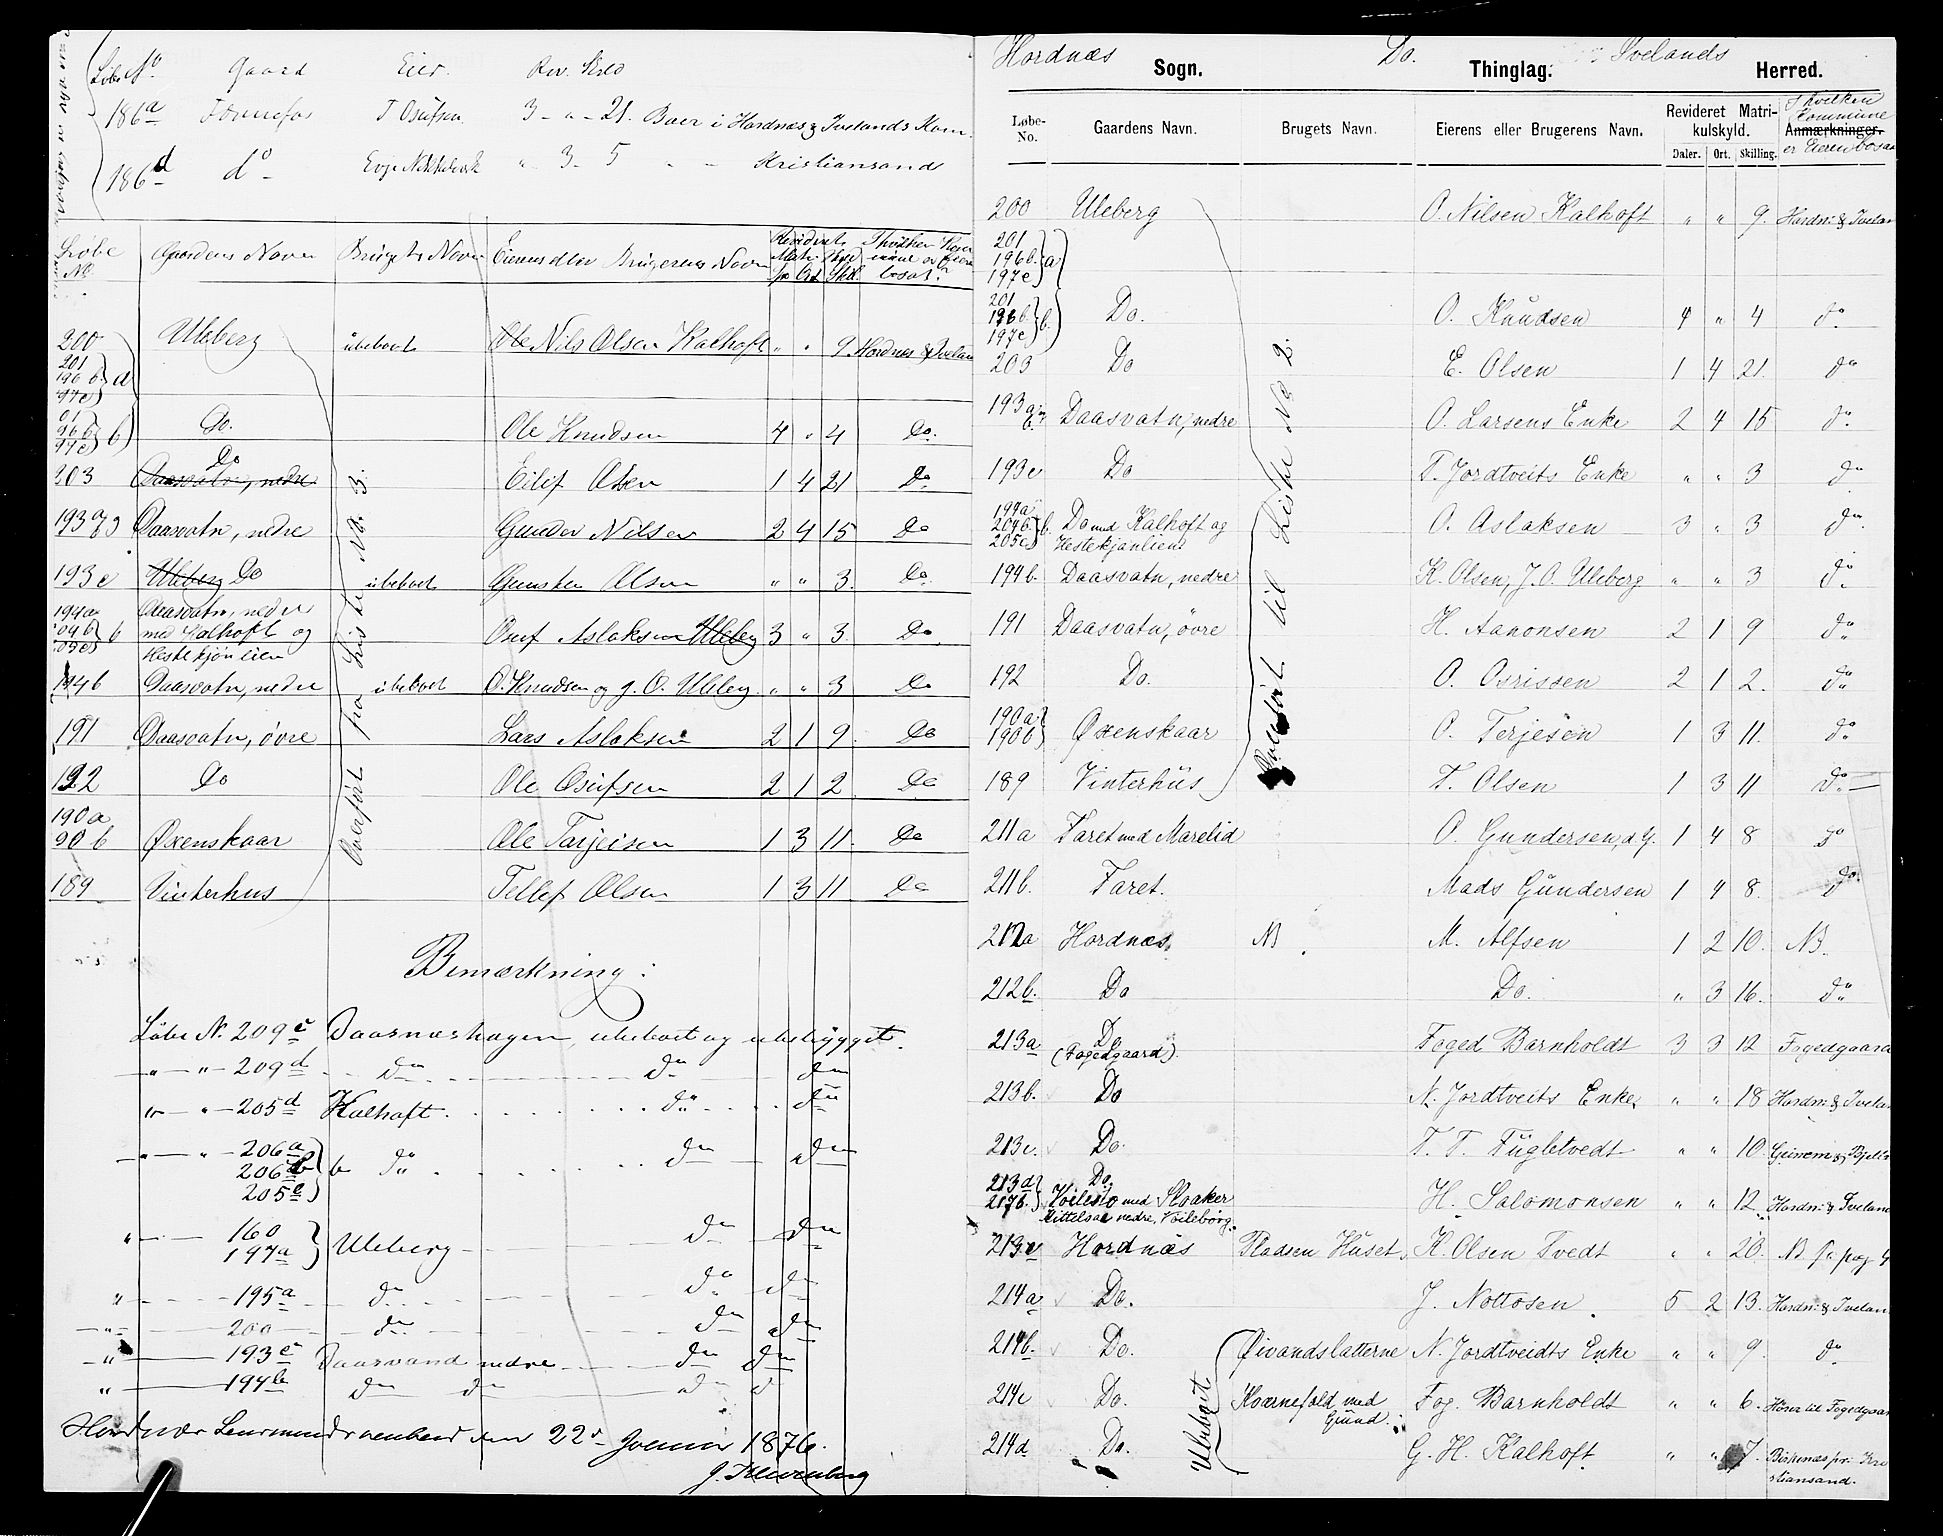 Løbe No. Gaard Eier. Rev. Skld
186a Fennefos T Osufsen 3 - " - 21. Boer i Hordnæs & Ivelands Kom.
186d do Evje Nikkelverk " 3 - 5 " " Kristiansand
Løbe No Gaardens Navn Brugets Navn Eierens eller Brugerens Navn Revideret Matr. Skyld Sp. Ort Skil. I hvilken Kommune er Eieren bosat.
200 Uleberg ubeboet Ole Nils Olsen Kalhoft " " 9 Hordnæs & Iveland
201
196 b
97e } a
01
96 b
97e } b) Do. Ole Knudsen 4 " 4 Do.
203 Daasvatn, nedre Do Eilef Olsen 1 4 21 Do
193 Daasvatn, nedre Gunder Nilsen 2 4 15 Do
193e Uleberg Do ubeboet Gunsten Olsen " " 3. Do.
194a
04 b
05e } b Daasvatn, nedre
med Kalhoft og
Hestekjønlien Osuf Aslaksen Uleberg 3 " 3 Do
194b Daasvatn, nedre ubeboet O. Knudsen og J. O. Uleberg " " 3 Do
191 Daasvatn, övre Lars Aslaksen 2 1 9 Do
192 Do Ole Osufsen 2 1 2 Do
190a
90 b Øxenskaar Ole Tarjeisen 1 3 11. Do
189 Vinterhus Tellef Olsen 1 3 11 Do
Overført fra Liste No. 3.
Bemærkning:
Løbe N. 209c Daasnæshagen, ubeboet og ubebygget.
" — " — 209d do do do
" — " — 205d Kalhoft. do do
" — " — 206a
206b
205e } b do do do
" — 160
197a } Uleberg do do
" — 195a do do do
" — 200 do do do
" — 193e Daasvand nedre do do
" — 194b do do do do
Hordnæs Lensmandsembed den 22de Januar 1876.
Hordnæs Sogn. Do. Thinglag. Ivelands Herred.
Løbe-No. Gaardens Navn. Brugets Navn. Eierens eller Brugerens Navn. Revideret Matrikulskyld. Daler. Ort. Skilling. Anmærkninger. I hvilken Kommune er Eieren bosat
200 Uleberg O. Nilsen Kalhoft " " 9. Hordn: & Ivelan
201
196b.
197e } a
201
196b.
197e } b. Do. O. Knudsen 4 " 4 do
203 Do E. Olsen 1 4 21. do
193a Daasvatn, nedre O. Larsens Enke 2 4 15 do
193e Do T. Jordtveits Enke " " 3 do
194a
204b.
205e } b. Do med Kalhoft og
Hestekjønlien. O. Aslaksen 3 " 3 do
194b. Daasvatn, nedre K. Olsen, J. O. Uleberg " " 3 do
191 Daasvatn, övre H. Aanonsen 2 1 9 do
192 Do. O. Osrissen 2 1 2. do
190a
190b } Øxenskaar O. Terjesön 1 3 11. do
189 Vinterhüs T. Olsen 1 3 11 do
Overført til Liste No 2.
211a Faret med Marelid O. Gundersen, d.Y. 1 4 8 do
211b. Faret. Mads Gundersen 1 4 8. do
212a Hordnæs. NB. M. Alfsen 1 2 10. NB.
212b. Do Do. " 3 16. do
213a Do
(Fogedgaard). Foged Barnholdt 3 3 12 Fogedgaard
213b. Do N. Jordtveits Enke. " " 18 Hordn: & Ivelan
213c. Do. T. T. Fügletvedt " " 10.
213d
217b. } Do.
Voilesto med Sloaker
Kittelsaa nedre, Voileborg. H. Salomonsen " " 12. Hordn: & Iveland
213e Hordnæs Pladsen Huset. K. Olsen Tvedt " " 20. NB. pag 4
214a Do. J. Nottosen. 5 2 13. Hordn: & Ivelan
214b. Do. Øivandslatterne N. Jordtveidts Enke " " 9. do
214c Do. Kværnefæld med
Gründ. Fog. Barnholdt " " 6. Hører til Fogedgaar
214d Do. G. H. Kalhoft " " 7. Birkenæs pr. Kri
stiansand.
Ubeboet